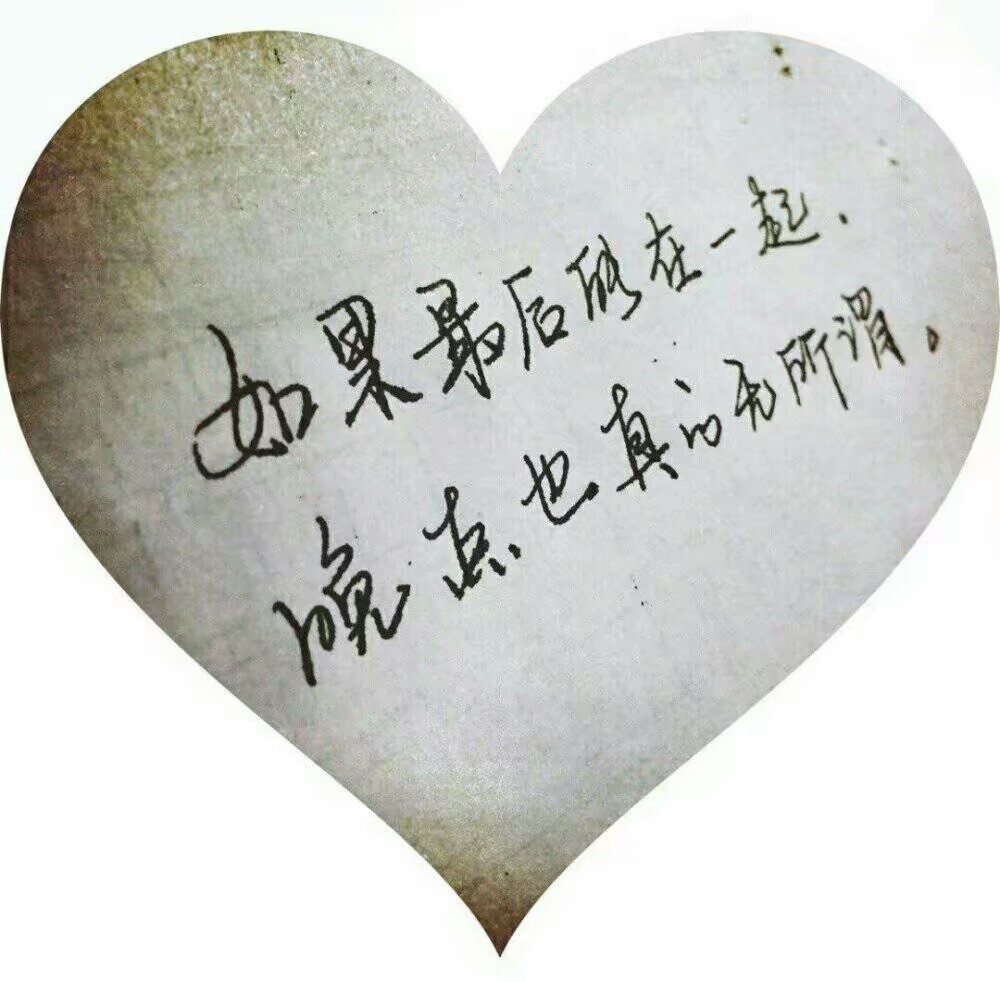 如果最后能在一起.
晚点也真的无所谓。